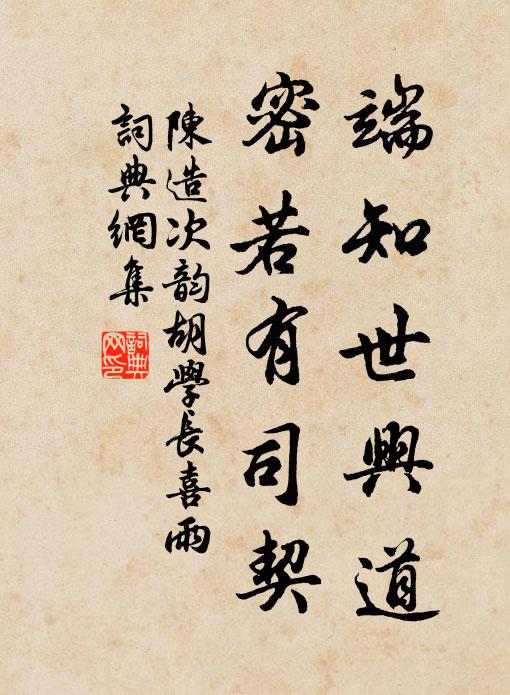 端知世興道
密若有司契
陳造次韵胡學長喜雨
詞典網集
詞典
网印